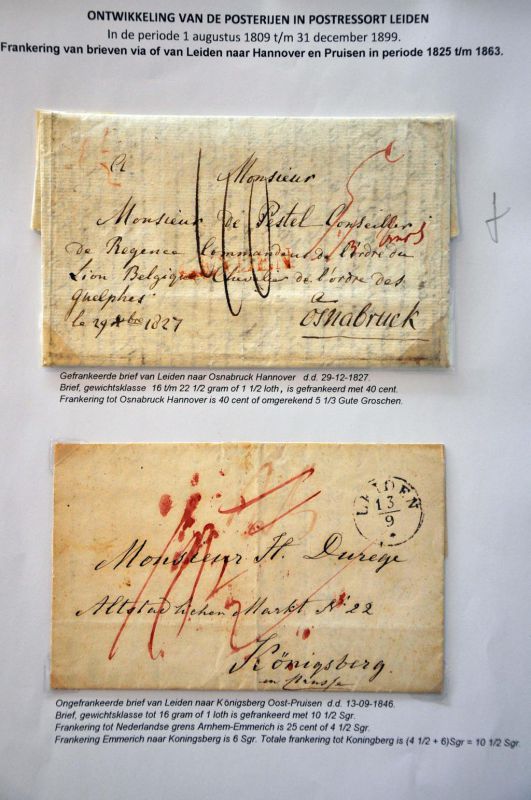 ONTWIKKELING VAN DE POSTERIJEN IN POSTRESSORT LEIDEN
In de periode 1 augustus 1809 t/m 31 december 1899.
Frankering van brieven via of van Leiden naar Hannover en Pruisen in periode 1825 t/m 1863.
A
Monsieur
Monsieur De Pestel Conseiller
de Regence Commandeur de l'ordre du
Lion Belgique Chevalier de l'ordre des
Guelphes
à
le 29 Xbre 1827
Osnabruck
LEIDEN
Gefrankeerde brief van Leiden naar Osnabruck Hannover d.d. 29-12-1827.
Brief, gewichtsklasse 16 t/m 22 1/2 gram of 1 1/2 loth, is gefrankeerd met 40 cent.
Frankering tot Osnabruck Hannover is 40 cent of omgerekend 5 1/3 Gute Groschen.
LEIDEN
13
9
Monsieur H. Durege
Altstadtschen Markt No 22
Königsberg
en Prusse
Ongefrankeerde brief van Leiden naar Königsberg Oost-Pruisen d.d. 13-09-1846.
Brief, gewichtsklasse tot 16 gram of 1 loth is gefrankeerd met 10 1/2 Sgr.
Frankering tot Nederlandse grens Arnhem-Emmerich is 25 cent of 4 1/2 Sgr.
Frankering Emmerich naar Koningsberg is 6 Sgr. Totale frankering tot Koningberg is (4 1/2 + 6)Sgr = 10 1/2 Sgr.